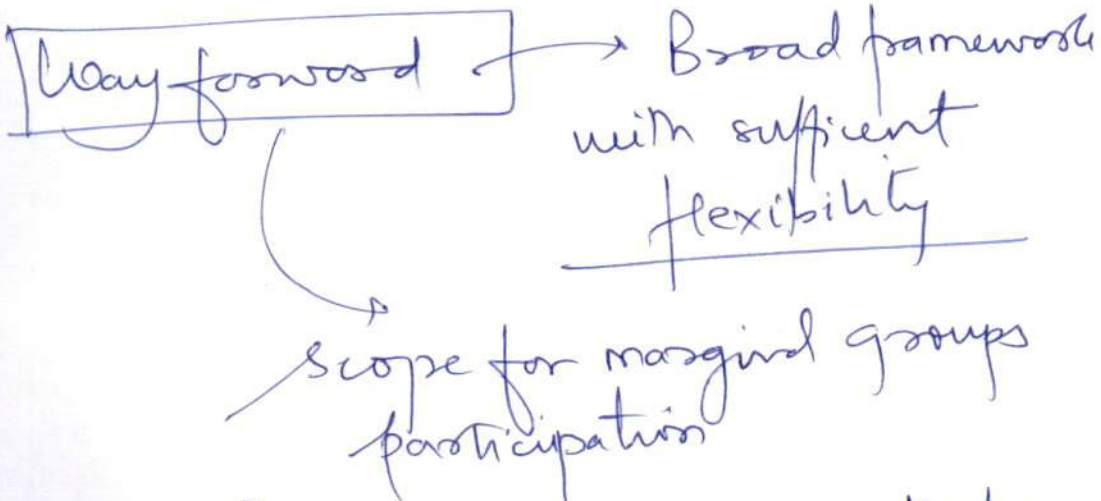 Way forward → Broad framework
with sufficent
flexibility
scope for marginal groups
participation